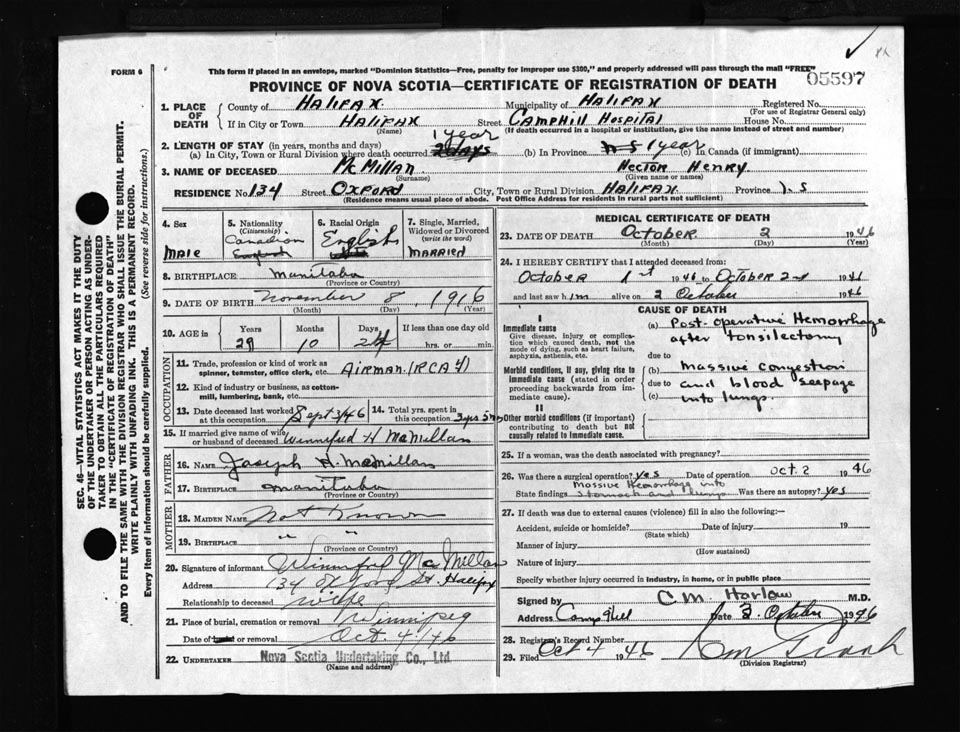 FORM 6
This form if placed in an envelope, marked "Dominion Statistics—Free, penalty for improper use $300," and properly addressed will pass through the mail "FREE"
05597
PROVINCE OF NOVA SCOTIA—CERTIFICATE OF REGISTRATION OF DEATH
SEC. 46—VITAL STATISTICS ACT MAKES IT THE DUTY
OF THE UNDERTAKER OR PERSON ACTING AS UNDER-
TAKER TO OBTAIN ALL THE PARTICULARS REQUIRED
IN THE "CERTIFICATE OF REGISTRATION OF DEATH"
AND TO FILE THE SAME WITH THE DIVISION REGISTRAR WHO SHALL ISSUE THE BURIAL PERMIT.
WRITE PLAINLY WITH UNFADING INK. THIS IS A PERMANENT RECORD.
Every item of information should be carefully supplied. (See reverse side for instructions.)
1. PLACE OF DEATH
County of HALIFAX. Municipality of HALIFAX Registered No.
(For use of Registrar General only)
If in City or Town HALIFAX Street CAMPHILL HOSPITAL House No.
(Name) (If death occurred in a hospital or institution, give the name instead of street and number)
2. LENGTH OF STAY (in years, months and days) 1 year
(a) In City, Town or Rural Division where death occurred 2 days (b) In Province 1 year (c) In Canada (if immigrant)
3. NAME OF DECEASED McMillan. Hector Henry.
(Surname) (Given name or names)
RESIDENCE No. 134 Street OXFORD City, Town or Rural Division HALIFAX. Province N.S
(Residence means usual place of abode. Post Office Address for residents in rural parts not sufficient)
4. Sex
MALE
5. Nationality
(Citizenship)
Canadian
English
6. Racial Origin
English
7. Single, Married, Widowed or Divorced
(write the word)
MARRIED
8. BIRTHPLACE Manitoba
(Province or Country)
9. DATE OF BIRTH November 8, 1916
(Month) (Day) (Year)
10. AGE in Years Months Days If less than one day old
29 10 24 hrs. or min.
OCCUPATION
11. Trade, profession or kind of work as spinner, teamster, office clerk, etc. AIRMAN. (RCAF)
12. Kind of industry or business, as cotton-mill, lumbering, bank, etc.
13. Date deceased last worked at this occupation Sept 3/46
14. Total yrs. spent in this occupation
15. If married give name of wife or husband of deceased Winnifred H McMillan
FATHER
16. NAME Joseph A. McMillan
17. BIRTHPLACE Manitoba
MOTHER
18. MAIDEN NAME Not Known
19. BIRTHPLACE " "
(Province or Country)
20. Signature of informant Winnifred McMillan
Address 134 Oxford St. Halifax
Relationship to deceased wife
21. Place of burial, cremation or removal Winnipeg
Date of burial or removal Oct. 4/46
22. UNDERTAKER Nova Scotia Undertaking Co., Ltd
(Name and address)
MEDICAL CERTIFICATE OF DEATH
23. DATE OF DEATH October 2 1946
(Month) (Day) (Year)
24. I HEREBY CERTIFY that I attended deceased from:
October 1st 1946 to October 2nd 1946
and last saw him alive on 2 October 1946
CAUSE OF DEATH
I
Immediate cause
Give disease, injury or complication which caused death, not the mode of dying, such as heart failure, asphyxia, asthenia, etc.
(a) Post-operative Hemorrhage
after tonsilectomy
due to
Morbid conditions, if any, giving rise to immediate cause (stated in order proceeding backwards from immediate cause).
(b) Massive congestion
due to and blood seepage
(c) into lungs.
II
Other morbid conditions (if important) contributing to death but not causally related to immediate cause.
25. If a woman, was the death associated with pregnancy?
26. Was there a surgical operation? yes Date of operation Oct. 2 1946
Massive Hemorrhage into
State findings Stomach and lungs Was there an autopsy? yes
27. If death was due to external causes (violence) fill in also the following:—
Accident, suicide or homicide? Date of injury 19
(State which)
Manner of injury
(How sustained)
Nature of injury
Specify whether injury occurred in industry, in home, or in public place
Signed by C.M. Harlow M.D.
Address Camp Hill Date 2. October 1946
28. Registrar's Record Number
29. Filed Oct 4 1946
(Division Registrar)